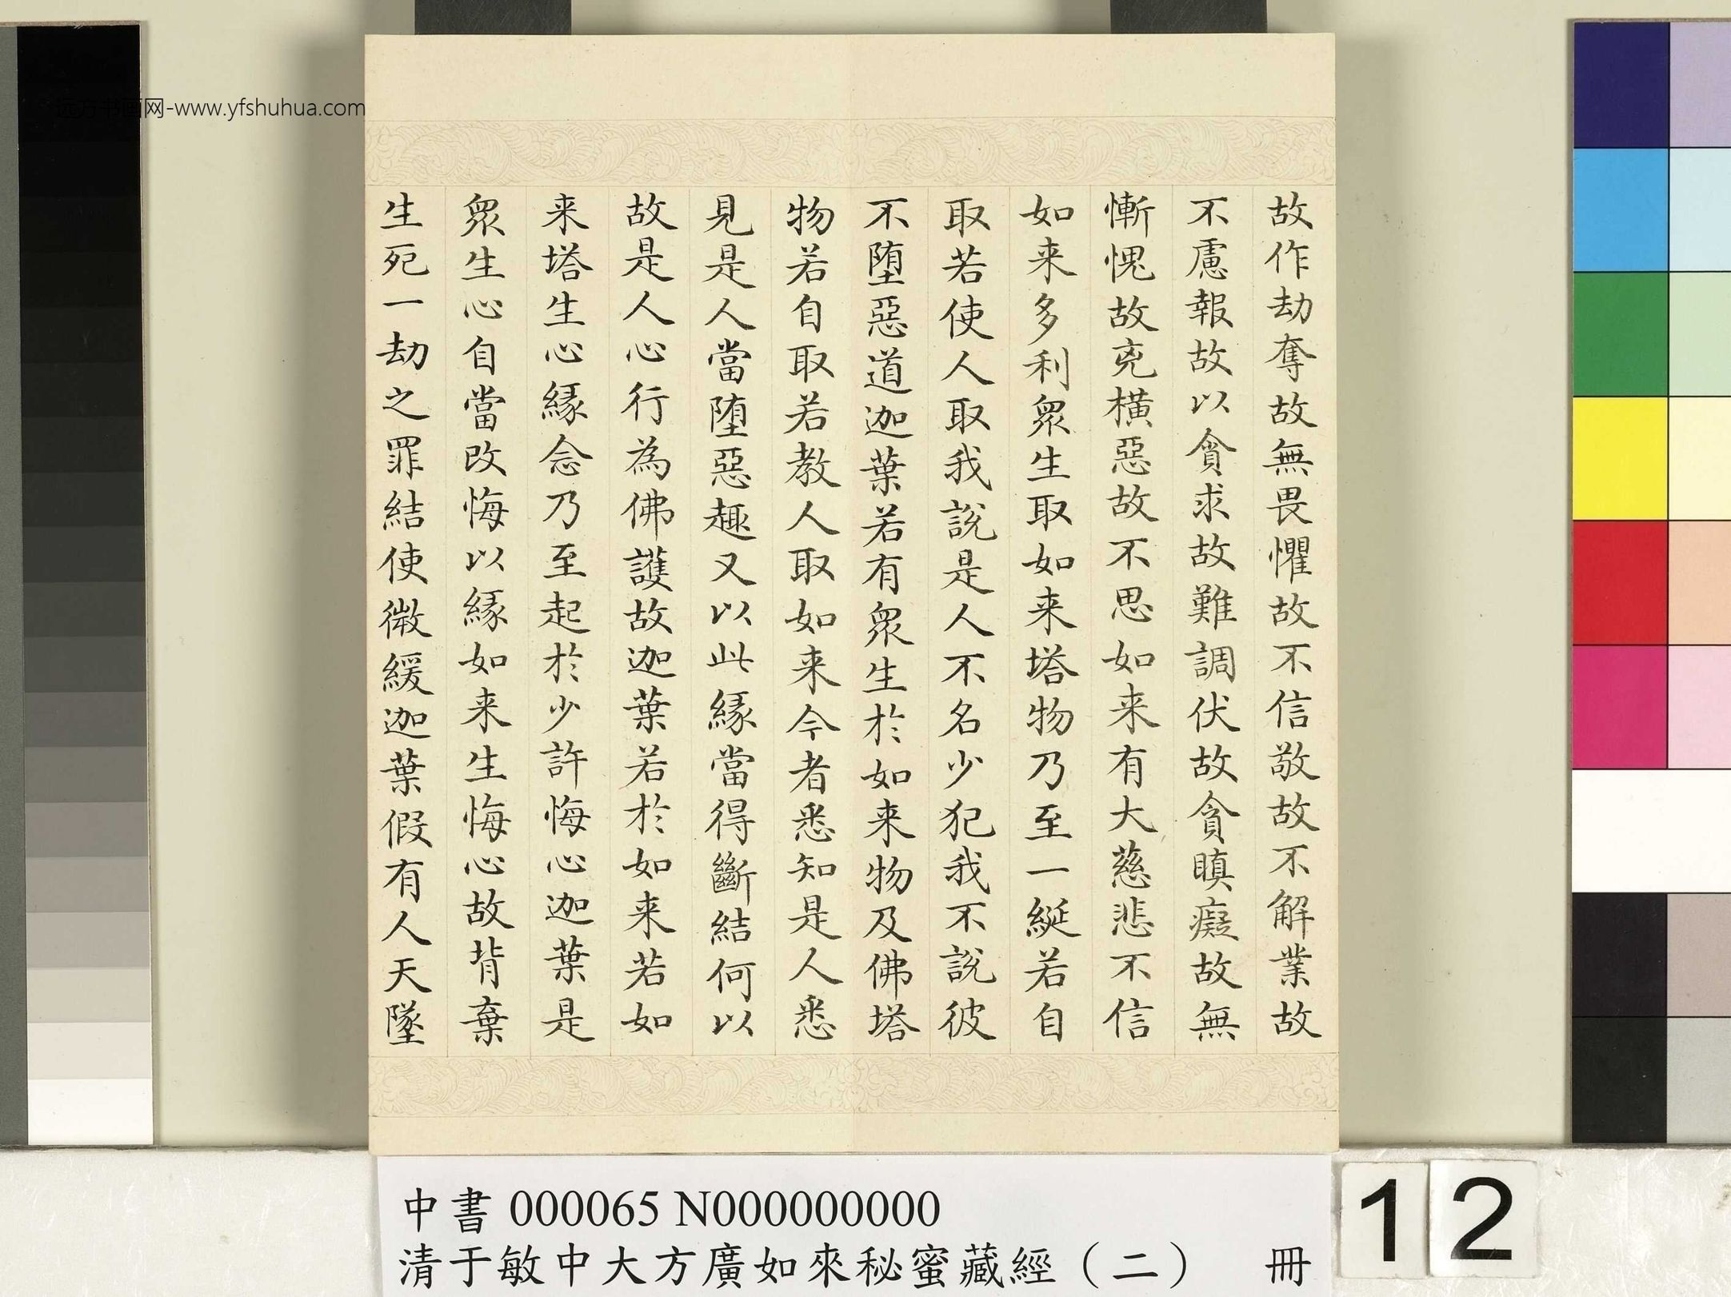 故作劫奪故無畏懼故不信敬故不解業故
不慮報故以貪求故難調伏故貪瞋癡故無
慚愧故兇橫惡故不思如来有大慈悲不信
如来多利眾生取如来塔物乃至一綖若自
取若使人取我說是人不名少犯我不說彼
不墮惡道迦葉若有眾生於如来物及佛塔
物若自取若教人取如来今者悉知是人悉
見是人當墮惡趣又以此緣當得斷結何以
故是人心行為佛護故迦葉若於如来若如
来塔生心緣念乃至起於少許悔心迦葉是
眾生心自當改悔以緣如来生悔心故背棄
生死一劫之罪結使微緩迦葉假有人天墜
中書 000065 N000000000
清于敏中大方廣如來秘蜜藏經（二） 冊
12
书画网-www.yfshuhua.com